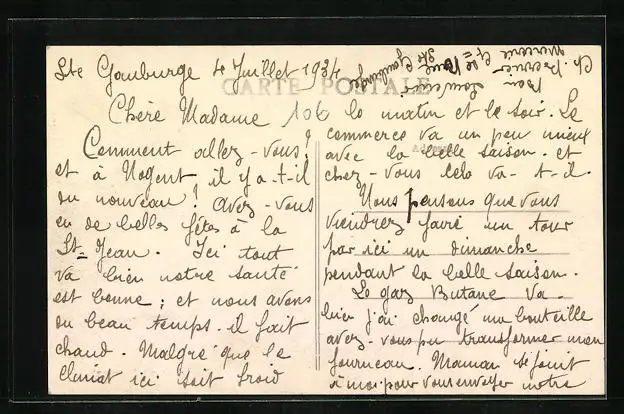 Ste Gauburge 4 Juillet 1934
CARTE POSTALE
Chère Madame
Comment allez-vous!
et à Nogent il y a-t-il
du nouveau! Avez-vous
eu de belles fêtes à la
St-Jean. Ici tout
va bien notre santé
est bonne; et nous avons
du beau temps. il fait
chaud. Malgré que le
climat ici soit froid
106
le matin et le soir. Le
commerce va un peu mieux
avec la belle saison. et
chez-vous cela va-t-il.
Nous pensons que vous
viendrez faire un tour
par ici un dimanche
pendant la belle saison.
Le gaz Butane va
bien j'ai changé ma bouteille
avez-vous pu transformer mon
fourneau. Maman se joint
à moi pour vous envoyer notre
bon
souvenir
Ch.
Mercerie
Ste Gauburge